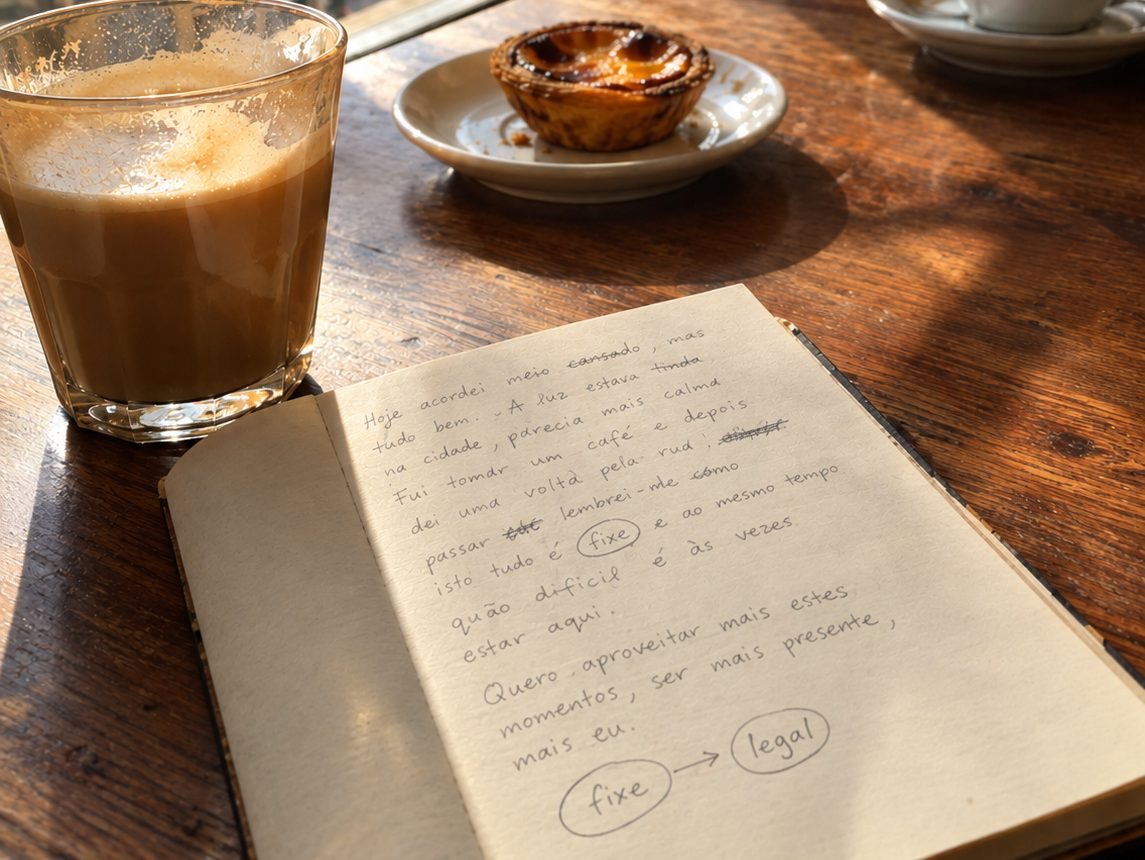 Hoje acordei meio cansado, mas
tudo bem. - A luz estava linda
na cidade, parecia mais calma
Fui tomar um café e depois
dei uma volta pela rua;
passar lembrei-me como
isto tudo é fixe e ao mesmo tempo
quão dificil é às vezes
estar aqui.
Quero aproveitar mais estes
momentos, ser mais presente,
mais eu.
fixe → legal